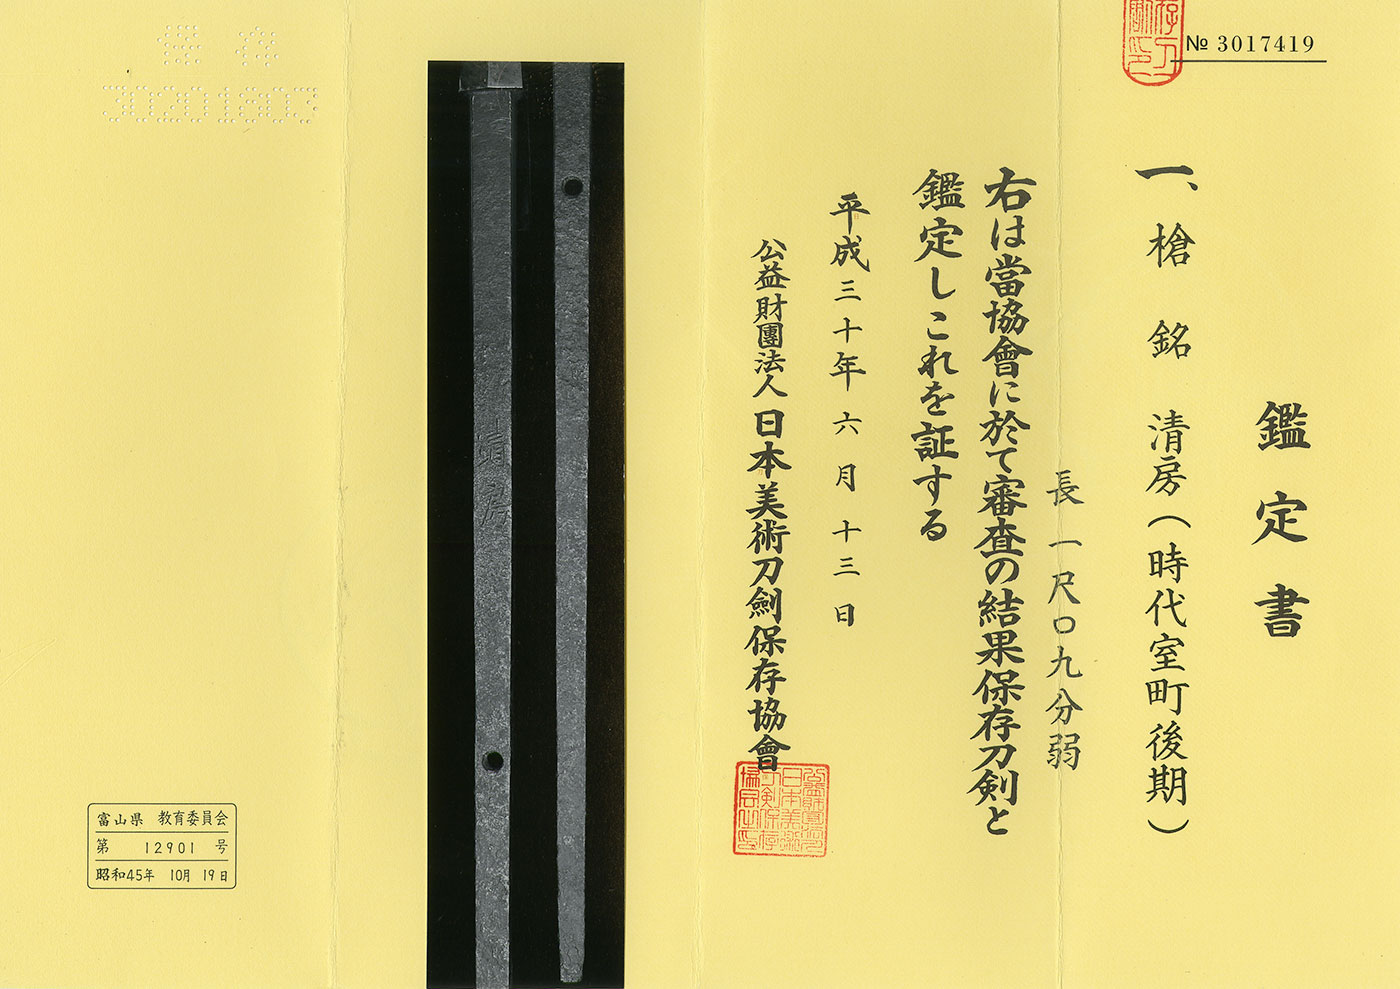 № 3017419
鑑定書
一、槍 銘 清房(時代室町後期)
長一尺〇九分弱
右は當協會に於て審査の結果保存刀剣と
鑑定しこれを証する
平成三十年六月十三日
公益財團法人日本美術刀劍保存協會
清房
保存
富山県 教育委員会
第 12901 号
昭和45年 10月 19日